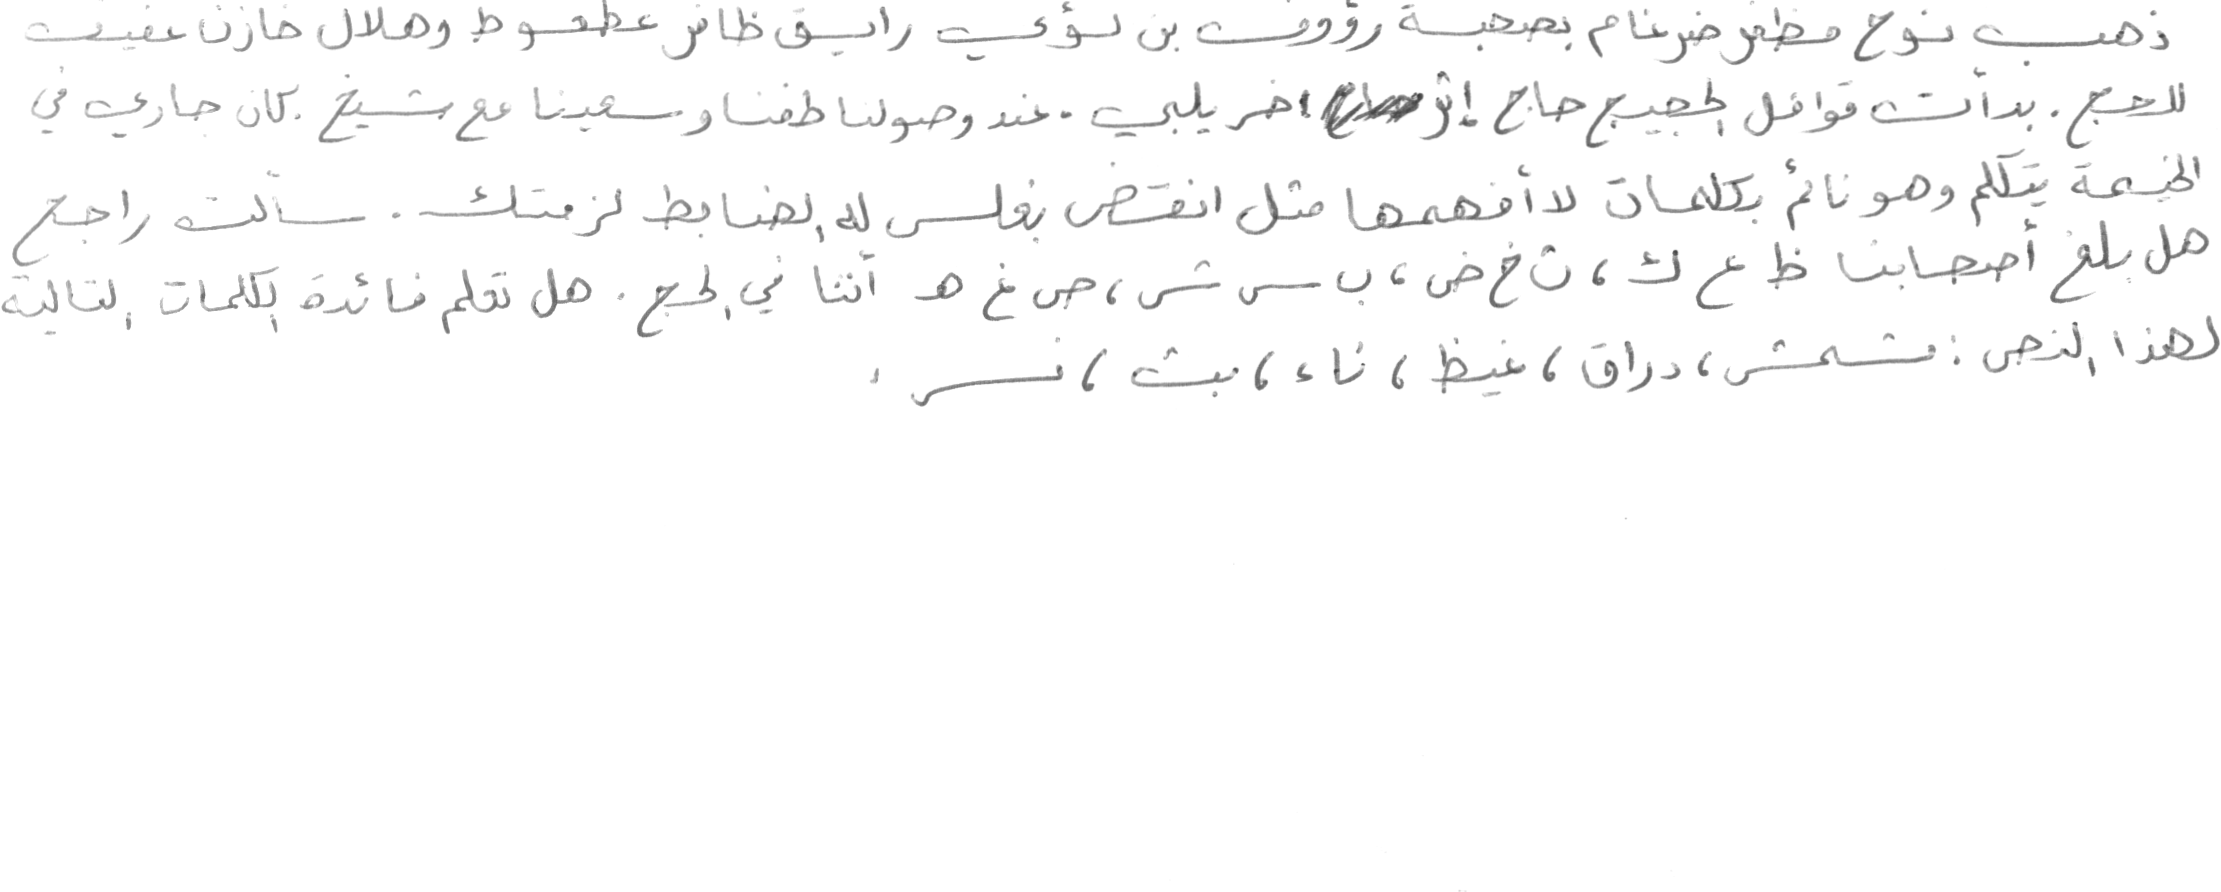 ذهب نوح مظفر ضرغام بصحبة رؤوف بن لؤي رايق ظافر عطعوط وهلال خازن عفيف
للحج . بدأت قوافل الحجيج حاج إثر اخر يلبي . عند وصولنا طفنا وسعينا مع شيخ . كان جاري في
الخيمة يتكلم وهو نائم بكلمات لا أفهمها مثل انقض بغلس له الضابط لزمتك . سألت راجح
هل بلغ أصحابنا ظ ع ك ، ث خ ض ، ب س ش ، ص غ هـ أننا في الحج . هل تعلم فائدة الكلمات التالية
لهذا النص : مشمش ، دراق ، غيظ ، ناء ، بث ، نسر .